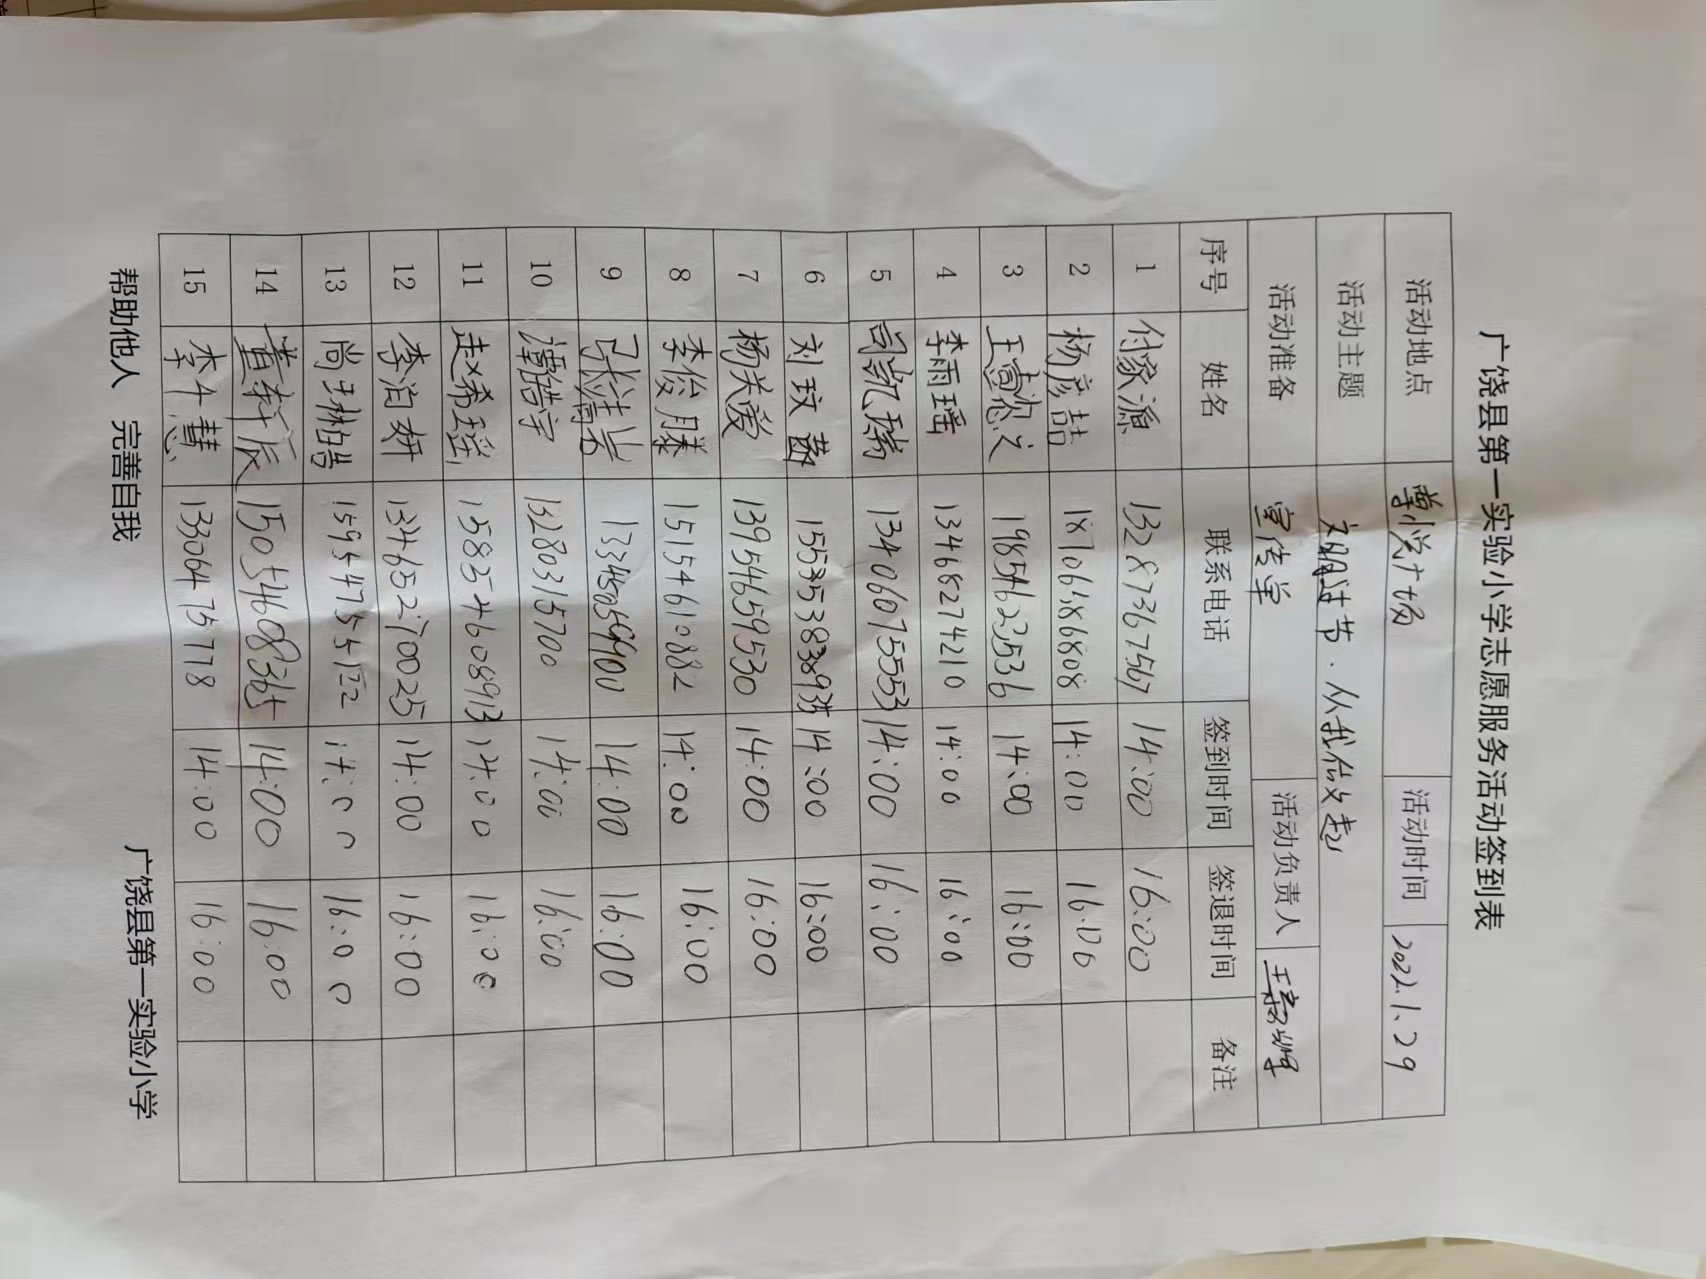 广饶县第一实验小学志愿服务活动签到表
活动地点 尊悦广场 活动时间 2022.1.29
活动主题 文明过节·从我做起
活动准备 宣传单 活动负责人
序号 姓名 联系电话 签到时间 签退时间 备注
1 付家源 13287367567 14:00 16:00
2 杨彦喆 18706486808 14:00 16:00
3 19854622536 14:00 16:00
4 李雨瑶 13468274210 14:00 16:00
5 司凯瑞 13406075553 14:00 16:00
6 刘玟 14:00 16:00
7 杨关爱 13954659530 14:00 16:00
8 李俊滕 15154610882 14:00 16:00
9 14:00 16:00
10 谭皓宇 13280315700 14:00 16:00
11 赵希瑶 15835460891 14:00 16:00
12 李泊妍 13465270025 14:00 16:00
13 14:00 16:00
14 董轩辰 14:00 16:00
15 李千慧 13306475778 14:00 16:00
帮助他人 完善自我 广饶县第一实验小学